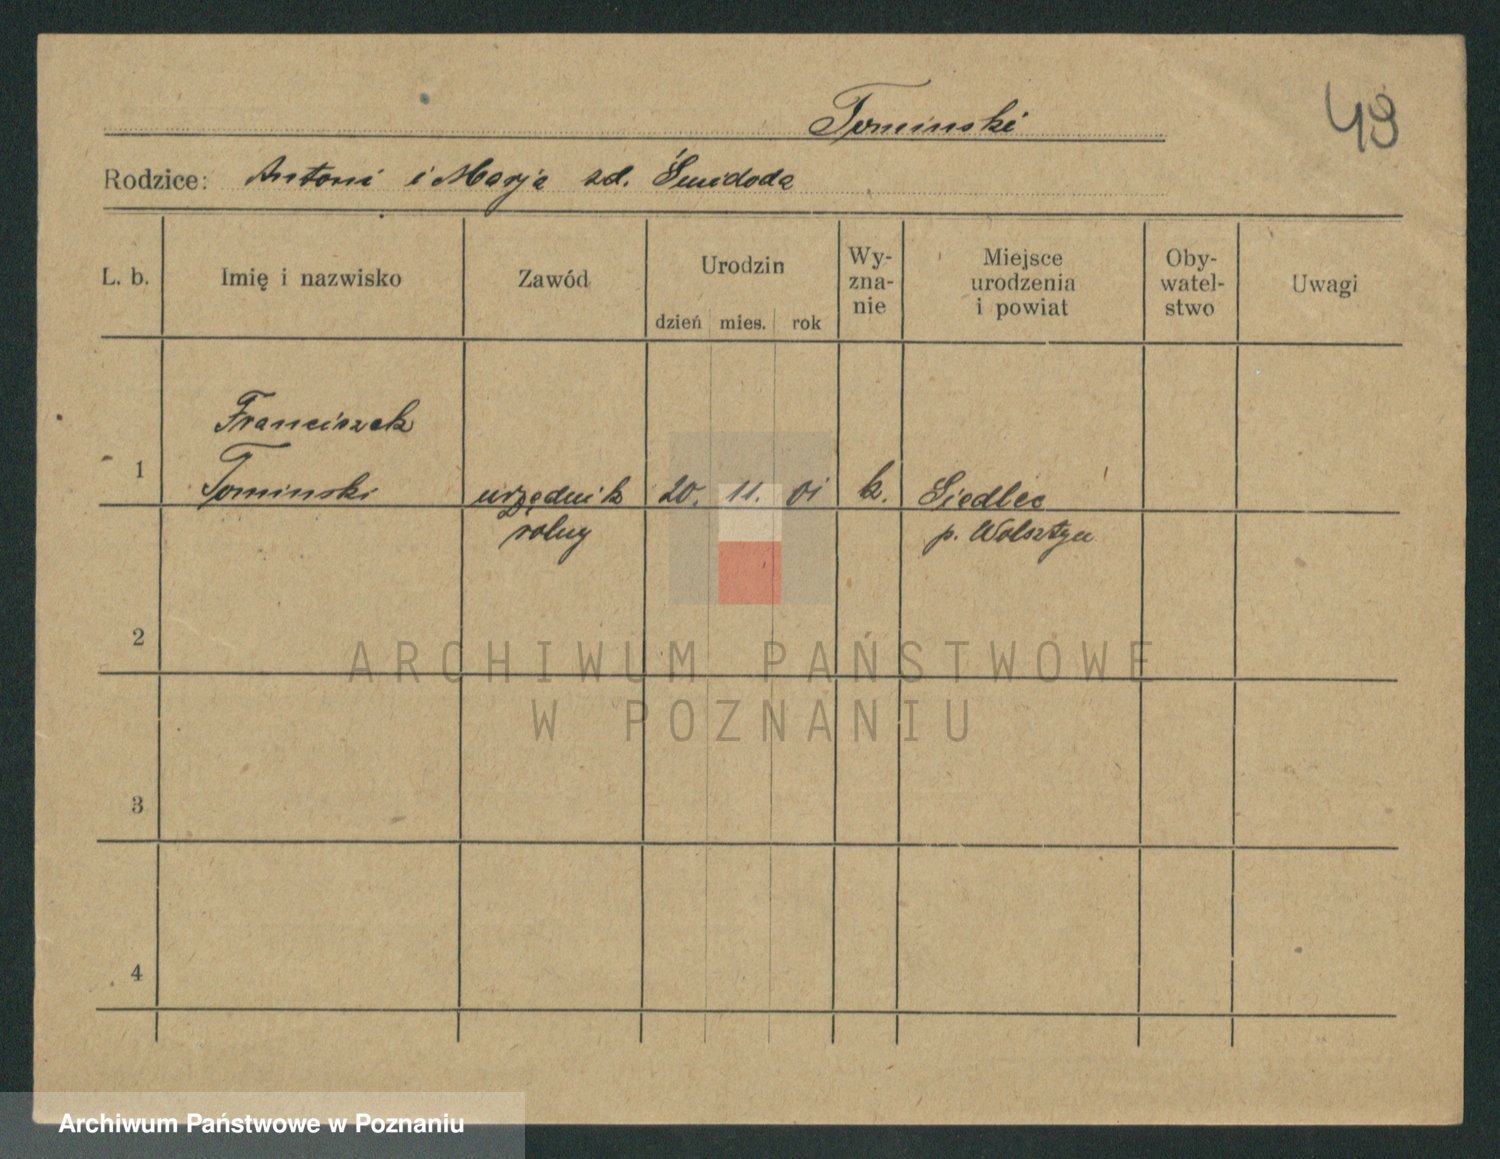 Tominski
49
Rodzice: Antoni i Marja zd. Śmidoda
L. b.
Imię i nazwisko
Zawód
Urodzin
dzień mies. rok
Wy-
zna-
nie
Miejsce
urodzenia
i powiat
Oby-
watel-
stwo
Uwagi
Franciszek
1 Tominski urzędnik 20. 11. 01 k. Siedlec
rolny p. Wolsztyn
2
ARCHIWUM PAŃSTWOWE
W POZNANIU
3
4
Archiwum Państwowe w Poznaniu